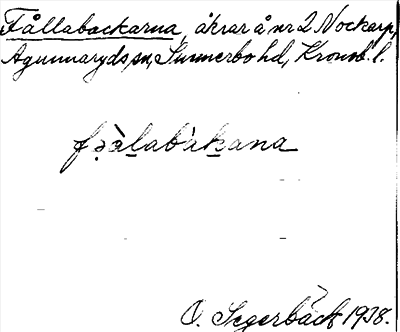 Fållabackarna, åkrar å nr 2 Nockarp,
Agunnaryds sn, Sunnerbo hd, Kronob. l.
fɷ̀alabàkana
O. Segerbäck 1938.